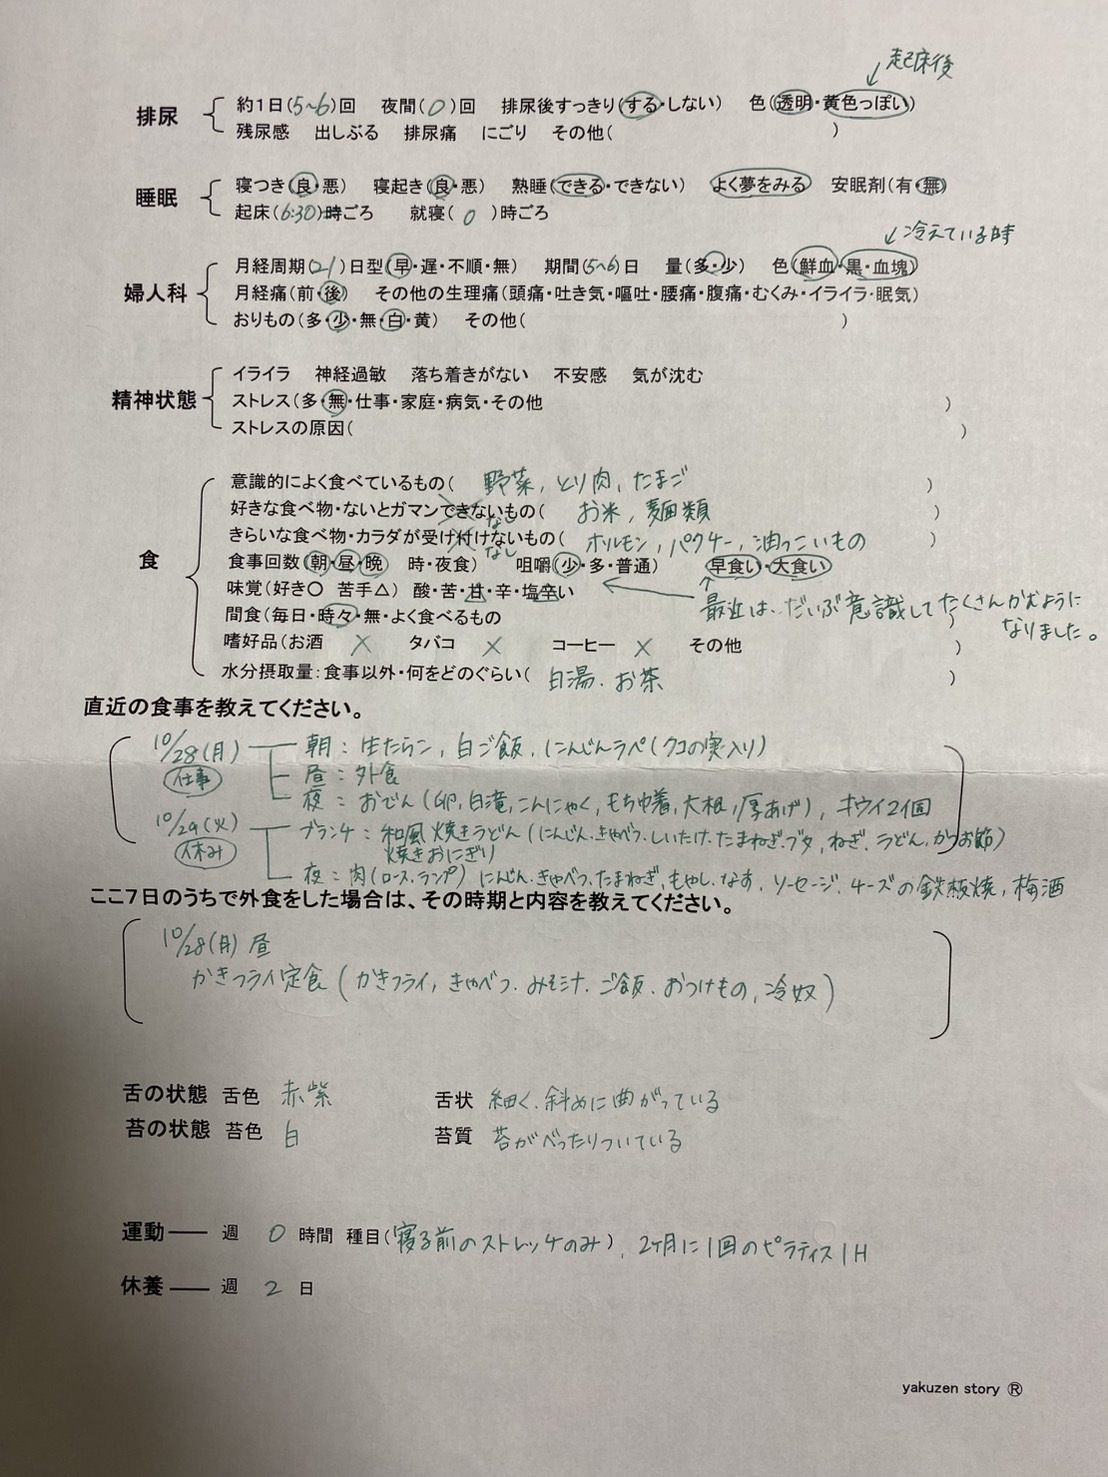 起床後
排尿 約1日(5~6)回 夜間(0)回 排尿後すっきり(する・しない) 色(透明・黄色っぽい)
残尿感 出しぶる 排尿痛 にごり その他( )
睡眠 寝つき(良・悪) 寝起き(良・悪) 熟睡(できる・できない) よく夢をみる 安眠剤(有・無)
起床(6:30)時ごろ 就寝(0)時ごろ
冷えている時
婦人科 月経周期(21)日型(早・遅・不順・無) 期間(5~6)日 量(多・少) 色(鮮血・黒・血塊)
月経痛(前・後) その他の生理痛(頭痛・吐き気・嘔吐・腰痛・腹痛・むくみ・イライラ・眠気)
おりもの(多・少・無・白・黄) その他( )
精神状態 イライラ 神経過敏 落ち着きがない 不安感 気が沈む
ストレス(多・無・仕事・家庭・病気・その他 )
ストレスの原因( )
食 意識的によく食べているもの( 野菜, とり肉, たまご )
好きな食べ物・ないとガマンできないもの( お米, 麺類 )
なし
きらいな食べ物・カラダが受け付けないもの( ホルモン, パクチー, 油っこいもの )
なし
食事回数(朝・昼・晩 時・夜食) 咀嚼(少・多・普通) 早食い・大食い
味覚(好き〇 苦手△) 酸・苦・甘・辛・塩辛い
最近は、だいぶ意識してたくさんかむように
なりました。
間食(毎日・時々・無・よく食べるもの )
嗜好品(お酒 × タバコ × コーヒー × その他 )
水分摂取量:食事以外・何をどのぐらい( 白湯、お茶 )
直近の食事を教えてください。
10/28(月) 朝: 生たらこ, 白ご飯, にんじんラペ(クコの実入り)
仕事 昼: 外食
夜: おでん(卵, 白滝, こんにゃく, もち巾着, 大根, 厚あげ), キウイ2個
10/29(火) ブランチ: 和風焼きうどん(にんじん、きゃべつ、しいたけ、たまねぎ、ブタ, ねぎ、うどん、かつお節)
休み 焼きおにぎり
夜: 肉(ロース、ランプ) にんじん、きゃべつ、たまねぎ, もやし、なす, ソーセージ、チーズの鉄板焼, 梅酒
ここ7日のうちで外食をした場合は、その時期と内容を教えてください。
10/28(月)昼
かきフライ定食(かきフライ, きゃべつ、みそ汁、ご飯、おつけもの, 冷奴)
舌の状態 舌色 赤紫 舌状 細く、斜めに曲がっている
苔の状態 苔色 白 苔質 苔がべったりついている
運動 ― 週 0 時間 種目(寝る前のストレッチのみ), 2ヶ月に1回のピラティス1H
休養 ― 週 2 日
yakuzen story ®